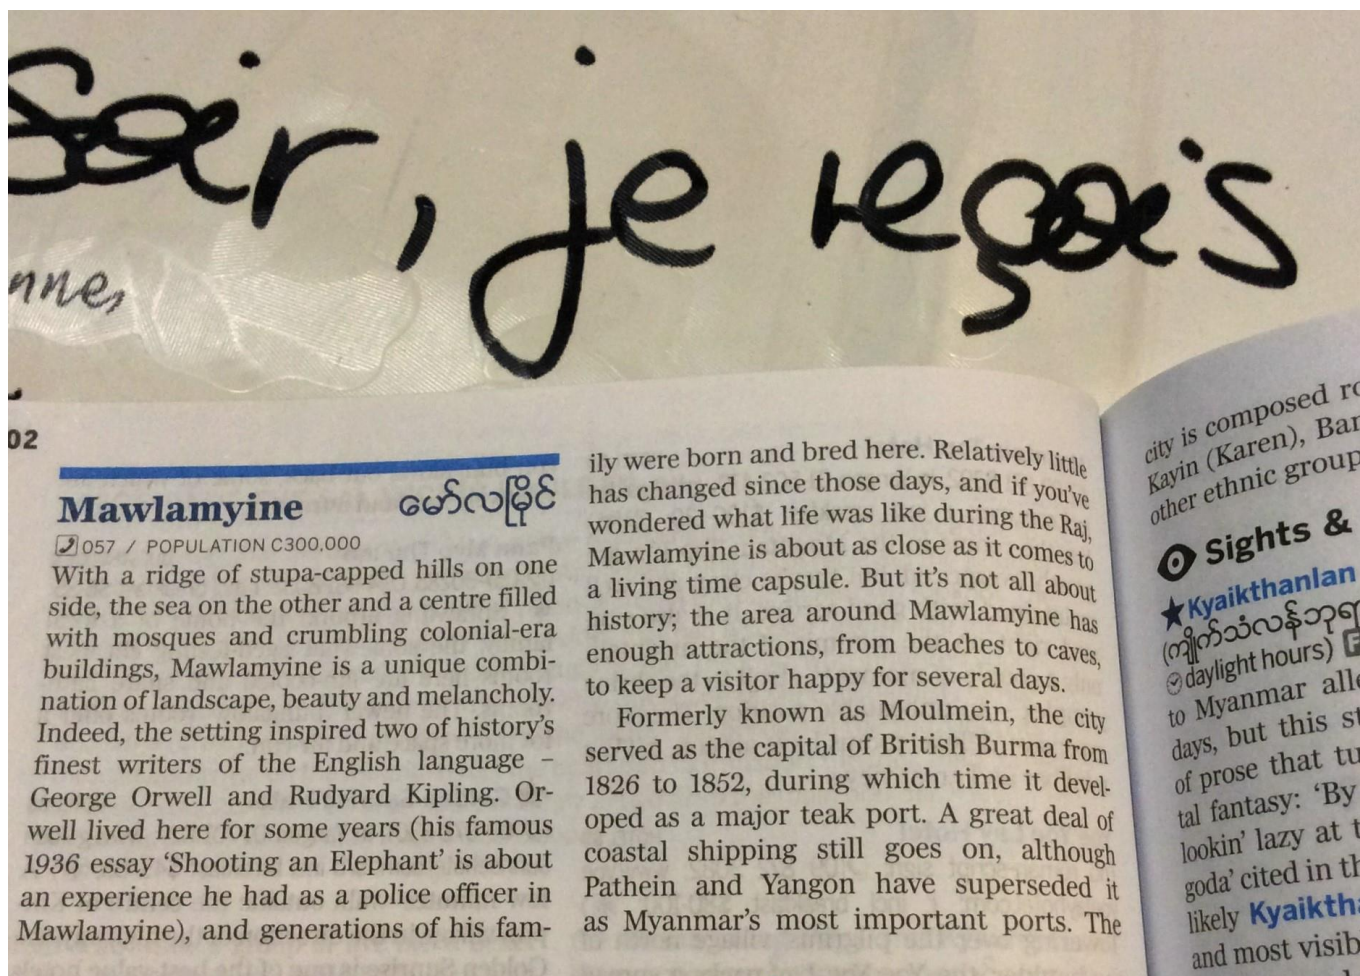 soir, je reçois
nne,
02
Mawlamyine မော်လမြိုင်
057 / POPULATION C300,000
With a ridge of stupa-capped hills on one
side, the sea on the other and a centre filled
with mosques and crumbling colonial-era
buildings, Mawlamyine is a unique combi-
nation of landscape, beauty and melancholy.
Indeed, the setting inspired two of history's
finest writers of the English language –
George Orwell and Rudyard Kipling. Or-
well lived here for some years (his famous
1936 essay 'Shooting an Elephant' is about
an experience he had as a police officer in
Mawlamyine), and generations of his fam-
ily were born and bred here. Relatively little
has changed since those days, and if you've
wondered what life was like during the Raj,
Mawlamyine is about as close as it comes to
a living time capsule. But it's not all about
history; the area around Mawlamyine has
enough attractions, from beaches to caves,
to keep a visitor happy for several days.
Formerly known as Moulmein, the city
served as the capital of British Burma from
1826 to 1852, during which time it devel-
oped as a major teak port. A great deal of
coastal shipping still goes on, although
Pathein and Yangon have superseded it
as Myanmar's most important ports. The
city is composed ro
Kayin (Karen), Bar
other ethnic group
Sights &
Kyaikthanlan
(ကျိုက်သံလန်ဘုရာ
daylight hours) F
to Myanmar alle
days, but this st
of prose that tu
tal fantasy: 'By
lookin' lazy at t
goda' cited in th
likely Kyaiktha
and most visib